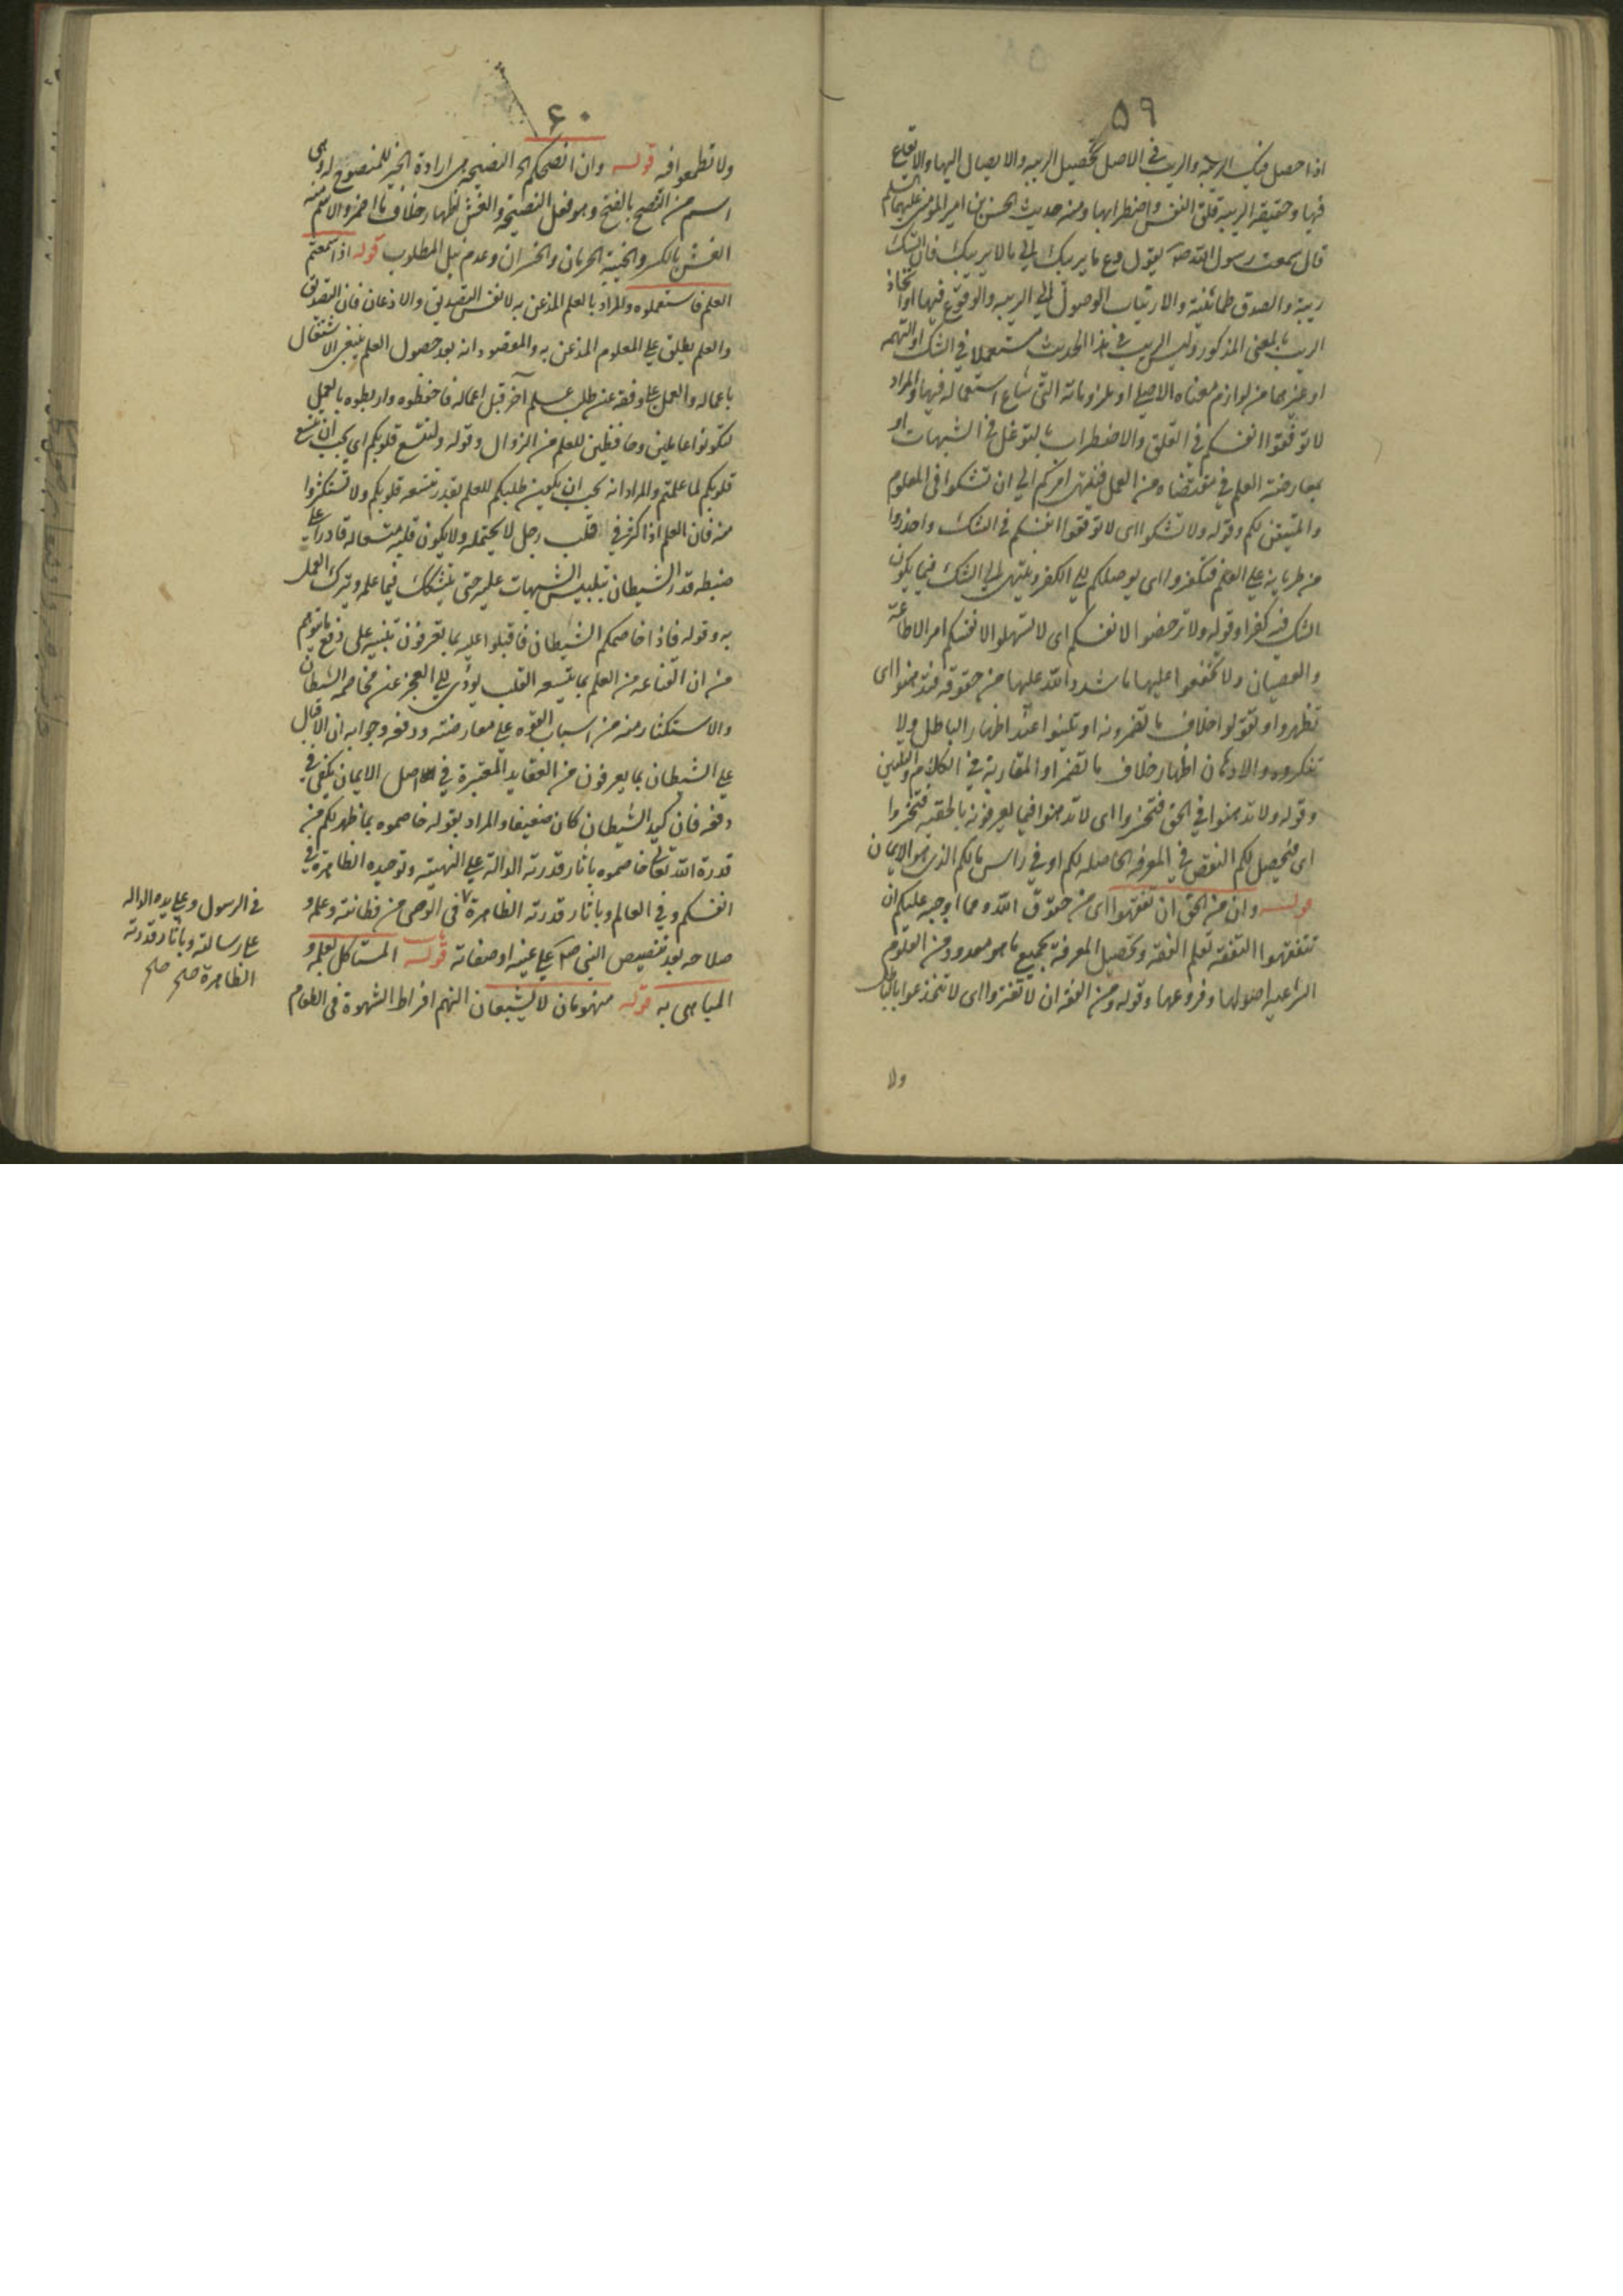 ٥٩
اذا حصل فيك الريبة والريب في الاصل تحصيل الريبة والايصال اليها والايقاع
فيها وحقيقة الريبة قلق النفس واضطرابها ومنه حديث الحسن بن امير المؤمنين عليهما السلم
قال سمعت رسول الله صـ يقول دع ما يريبك الى ما لا يريبك فان الشك
ريبة والصدق طمانينة والارتياب الوصول الى الريبة والوقوع فيها او اتخاذ
الريب بالمعنى المذكور وليس الريب في هذا الحديث مستعملا في الشك او التهمة
او غيرهما من لوازم معناه الاصلي او ملزوماته التي شاع استعماله فيها والمراد
لا توقعوا انفسكم في القلق والاضطراب بالتوغل في الشبهات او
بمعارضة العلم في مقتضاه من العمل فينتهي امركم الى ان تشكوا في المعلوم
والمتيقن لكم وقوله ولا تشكوا اى لا توقعوا انفسكم في الشك واحذروا
من طريانه على العلم فتكفروا اى يوصلكم الى الكفر وينتهي الى الشك فيما يكون
الشك فيه كفرا وقوله ولا ترخصوا لانفسكم اى لا تسهلوا لانفسكم امر الاطاعة
والعصيان ولا تخففوا عليها ما شدد الله عليها من حقوقه فتدهنوا اى
تظهروا او تقولوا خلاف ما تضمرونه او تلينوا عند اظهار الباطل ولا
تنكروه والادهان اظهار خلاف ما تضمر او المقاربة في الكلام والتليين
وقوله ولا تدهنوا في الحق فتخسروا اى لا تدهنوا فيما تعرفونه بالحقية فتخسروا
اى فيحصل لكم النقص في المعرفة الحاصلة لكم او في راس مالكم الذى هو الايمان
قولـــه وان من الحق ان تفقهوا اى من حقوق الله ومما اوجبه عليكم ان
تتفقهوا التفقه تعلم الفقه وتحصيل المعرفة بجميع ما هو معدود من العلوم
الشرعية اصولها وفروعها وقوله ومن الفقه ان لا تغتروا اى لا تنخدعوا بالباطل
ولا
٦٠
ولا تطمعوا فيه قولـــه وان انصحكم الخ النصيحة هى ارادة الخير للمنصوح له وهى
اسم من النصح بالفتح وهو فعل النصيحة والغش اظهار خلاف ما اضمر والاسم منه
الغش بالكسر والخيبة الحرمان والخسران وعدم نيل المطلوب قوله اذا سمعتم
العلم فاستعملوه والمراد بالعلم المذعن به لا نفس التصديق والاذعان فان التصديق
والعلم يطلق على المعلوم المذعن به والمقصود انه بعد حصول العلم ينبغى الاشتغال
باعماله والعمل على وفقه عن طلب علم آخر قبل اعماله فاحفظوه واربطوه بالعمل
لتكونوا عاملين وحافظين للعلم من الزوال وقوله ولتتسع قلوبكم اى يجب ان تتسع
قلوبكم لما علمتم والمراد انه يجب ان يكون طلبكم للعلم بقدر تتسعه قلوبكم ولا تستكثروا
منه فان العلم اذا كثر في قلب رجل لا يحتمله ولا يكون قلبه متسعا له قادرا على
ضبطه قدر الشيطان بتلبيس الشبهات عليه حتى يتشكك فيما علمه ويترك العمل
به وقوله فاذا خاصمكم الشيطان فاقبلوا عليه بما تعرفون تنبيه على دفع ما يتوهم
من ان القناعة من العلم بما يتسعه القلب يؤدى الى العجز عن مخاصمة الشيطان
والاستكثار منه من اسباب القوة على معارضته ودفعه وجوابه ان الاقبال
على الشيطان بما يعرفون من العقايد المعتبرة في اصل الايمان يكفى في
دفعه فان كيد الشيطان كان ضعيفا والمراد بقوله خاصموه بما ظهر لكم من
قدرة الله تعالى خاصموه بآثار قدرته الدالة على الهيته وتوحيده الظاهرة في
انفسكم وفي العالم وبآثار قدرته الظاهرة في الوصى من فطانته وعلمه و
صلاحه بعد تنصيص النبى صـ على عينه او صفاته قولـــه المستاكل بعلمه و
المباهى به قوله منهومان لا يشبعان النهم افراط الشهوة في الطعام
في الرسول وعلى يده الدالة
على رسالته وبآثار قدرته
الظاهرة صح صح